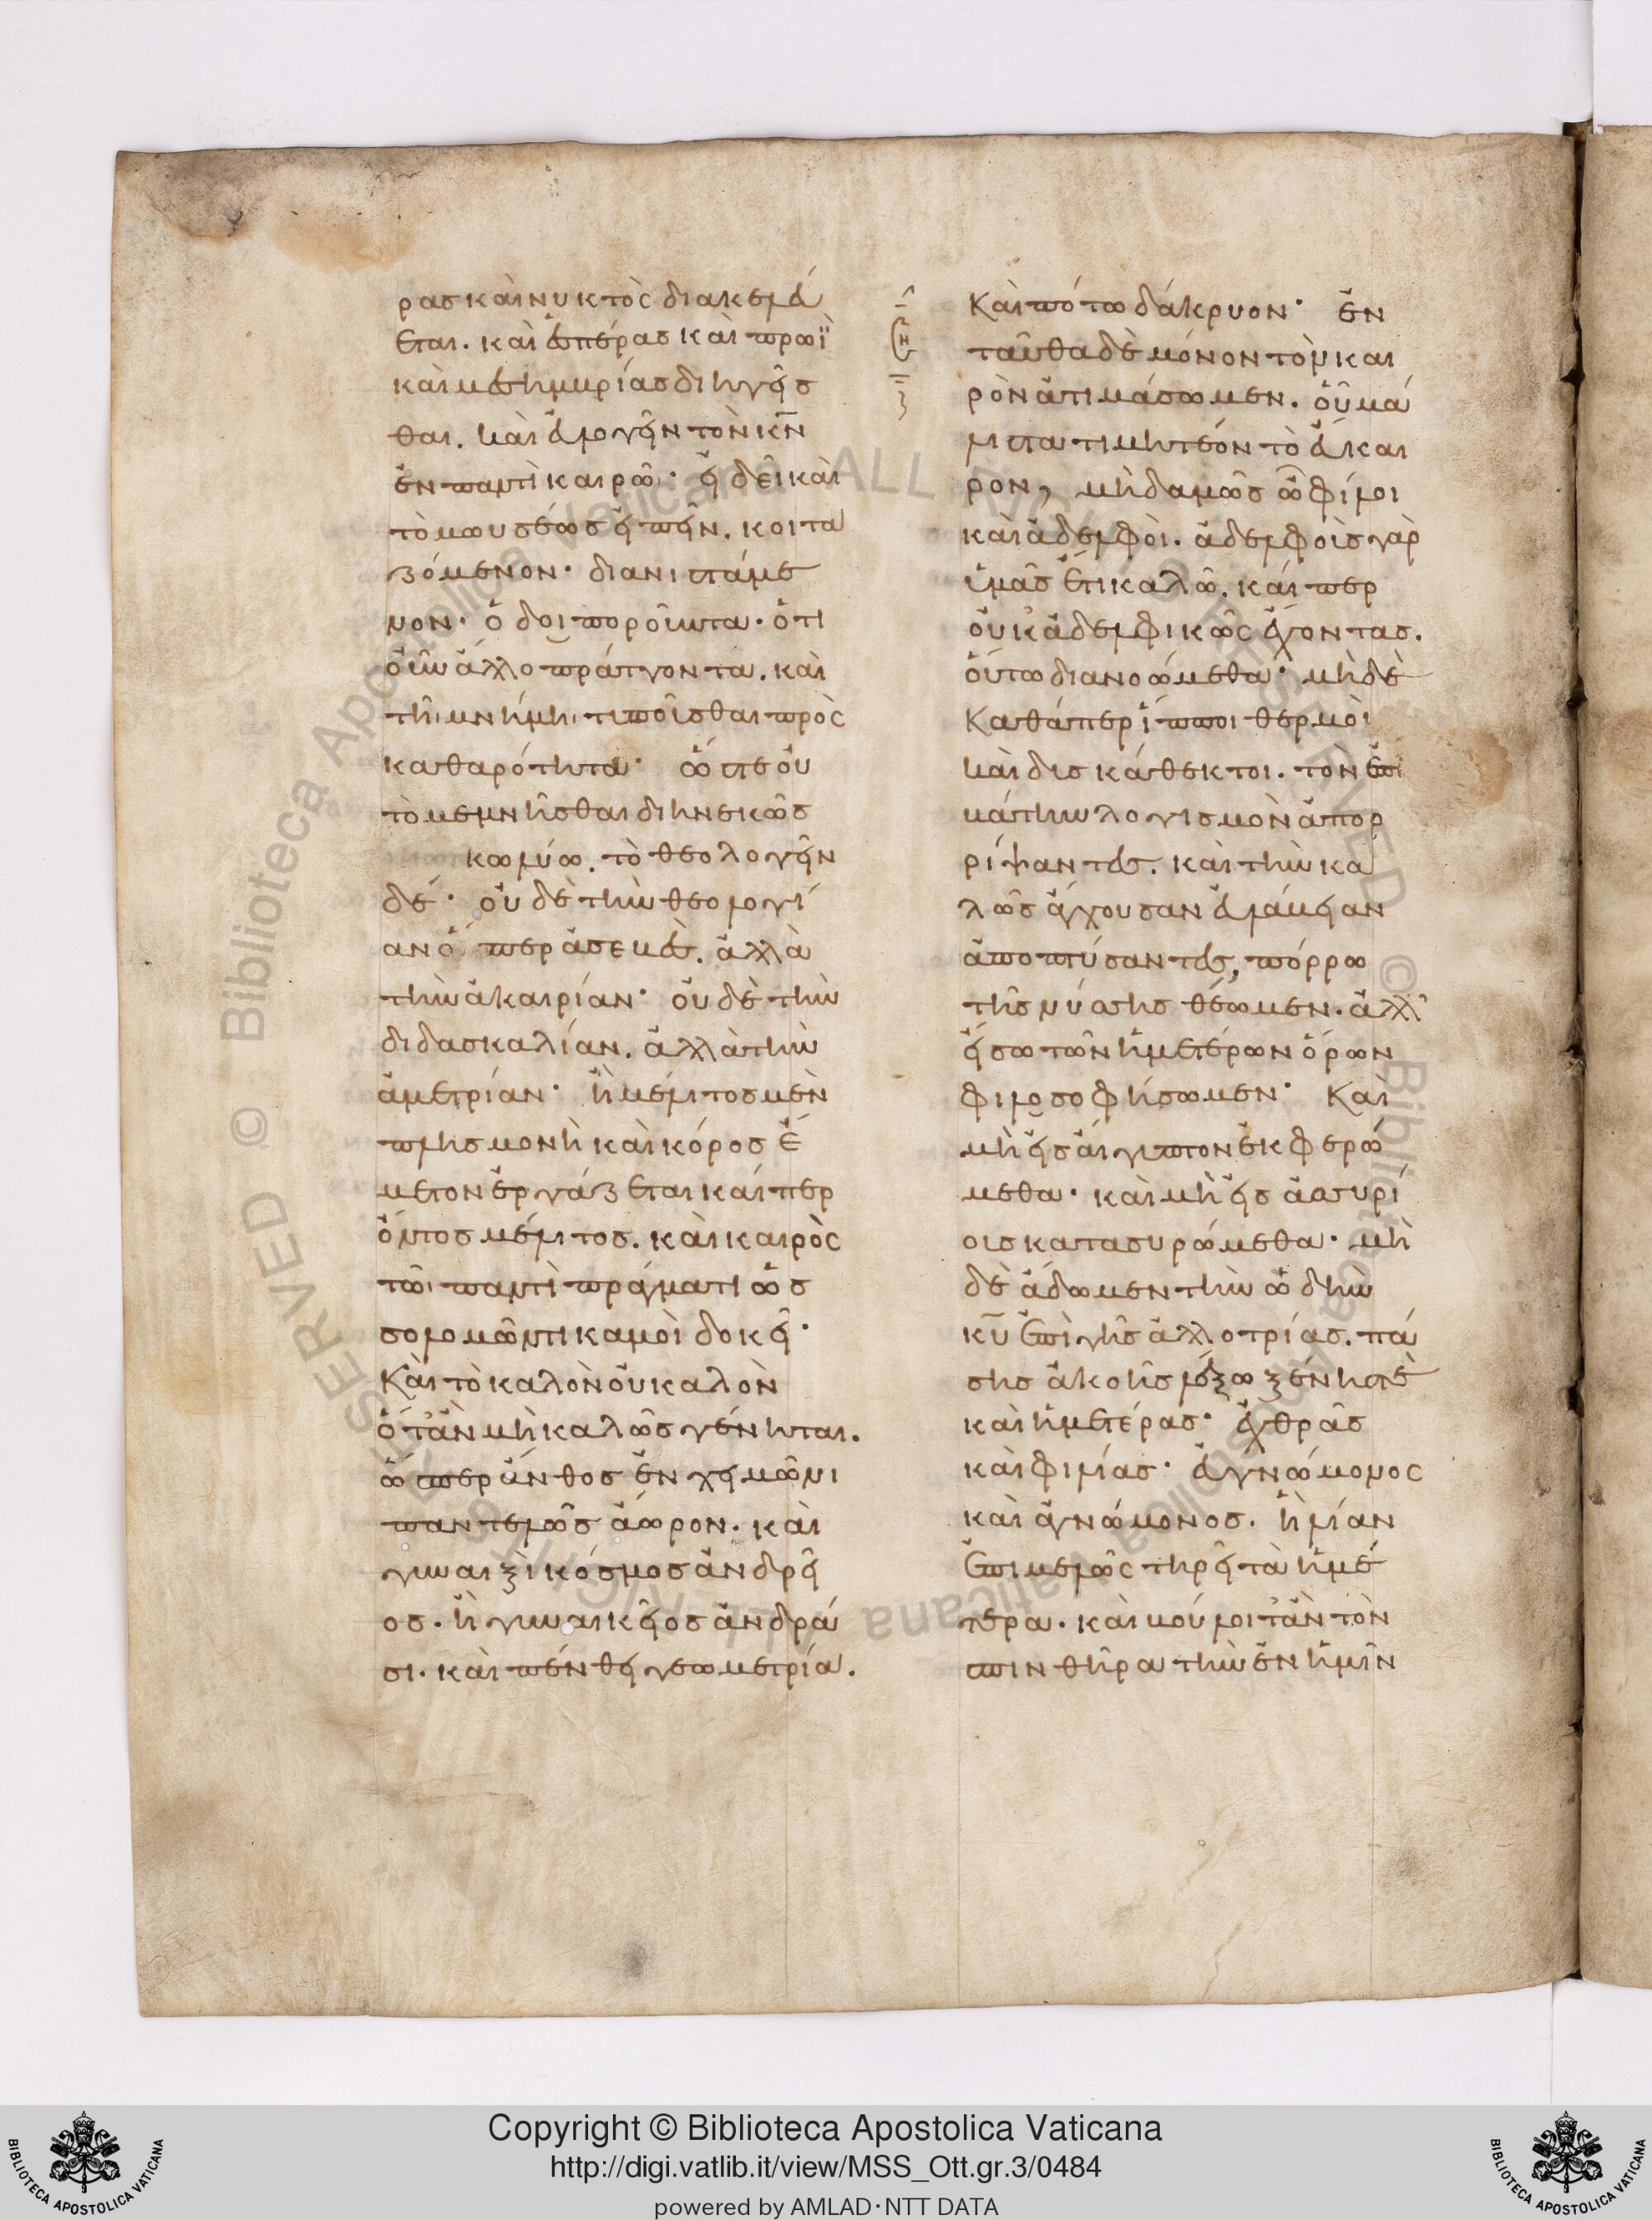 ρασ καὶ νυκτὸς διακελεύ
εται. καὶ ἑσπέρασ καὶ πρωῒ
καὶ μεσημβρίασ διηγεῖσ
θαι. καὶ εὐλογεῖν τὸν κ̅ν̅
ἐν παντὶ καιρῶ· εἰ δεῖ καὶ
τὸ μωυσέωσ εἰπεῖν. κοιτα
ζόμενον· διανιστάμε
νον· ὁδοιποροῦντα· ὅτι
οὖν ἄλλο πράττοντα. καὶ
τῆι μνήμηι τυποῦσθαι πρὸς
καθαρότητα· ὥστε οὐ
τὸ μεμνῆσθαι διηνεκῶσ
κωλύω. τὸ θεολογεῖν
δέ· οὐδὲ τὴν θεολογί
αν ὥσπερ ἀσεβὲσ. ἀλλὰ
τὴν ἀκαιρίαν· οὐδὲ τὴν
διδασκαλίαν. ἀλλὰ τὴν
ἀμετρίαν· ἢ μέλιτοσ μὲν
πλησμονὴ καὶ κόροσ ἔ
μετον ἐργάζεται καίπερ
ὄντοσ μέλιτοσ. καὶ καιρὸς
τῶι παντὶ πράγματι ὡσ
σολομῶντι καμοὶ δοκεῖ·
Καὶ τὸ καλὸν οὐ καλὸν
ὅτ' ἂν μὴ καλῶσ γένηται.
ὥσπερ ἄνθοσ ἐν χειμῶνι
παντελῶσ ἄωρον. καὶ
γυναιξὶ κόσμοσ ἀνδρεῖ
οσ. ἢ γυναικεῖοσ ἀνδρά
σι. καὶ πένθει γεωμετρία.
Καὶ πότω δάκρυον· ἐν
ταῦθα δὲ μόνον τὸν και
ρὸν ἀτιμάσωμεν. οὗ μά
λιστα τιμητέον τὸ εὔκαι
ρον, μηδαμῶσ ὦ φίλοι
καὶ ἀδελφοί. ἀδελφοὺσ γὰρ
ὑμᾶσ ἔτι καλῶ. καίπερ
οὐκ ἀδελφικῶς ἔχοντασ.
οὕτω διανοώμεθα· μηδὲ
Καθάπερ ἵπποι θερμοὶ
καὶ δυσκάθεκτοι. τὸν ἐπι
βάτην λογισμὸν ἀπορ
ρίψαντεσ. καὶ τὴν κα
λῶσ ἄγχουσαν εὐλάβειαν
ἀποπτύσαντεσ, πόρρω
τῆσ νύσσησ θέωμεν. ἀλλ'
εἴσω τῶν ἡμετέρων ὅρων
φιλοσοφήσωμεν· Καὶ
μὴ εἰσ αἴγυπτον ἐκφερώ
μεθα· καὶ μὴ εἰσ ἀσσυρί
ουσ κατασυρώμεθα· μη
δὲ ἄδωμεν τὴν ὠδὴν
κ̅υ̅ ἐπὶ γῆσ ἀλλοτρίασ. πά
σησ ἀκοῆσ λέγω ξένησ τὲ
καὶ ἡμετέρασ· ἐχθρᾶσ
καὶ φιλίασ· εὐγνώμονος
καὶ ἀγνώμονοσ. ἣ λίαν
ἐπιμελῶς τηρεῖ τὰ ἡμέ
τερα. καὶ βούλοιτ' ἂν τὸν
σπινθῆρα τῶν ἐν ἡμῖν
Copyright © Biblioteca Apostolica Vaticana
http://digi.vatlib.it/view/MSS_Ott.gr.3/0484
powered by AMLAD·NTT DATA